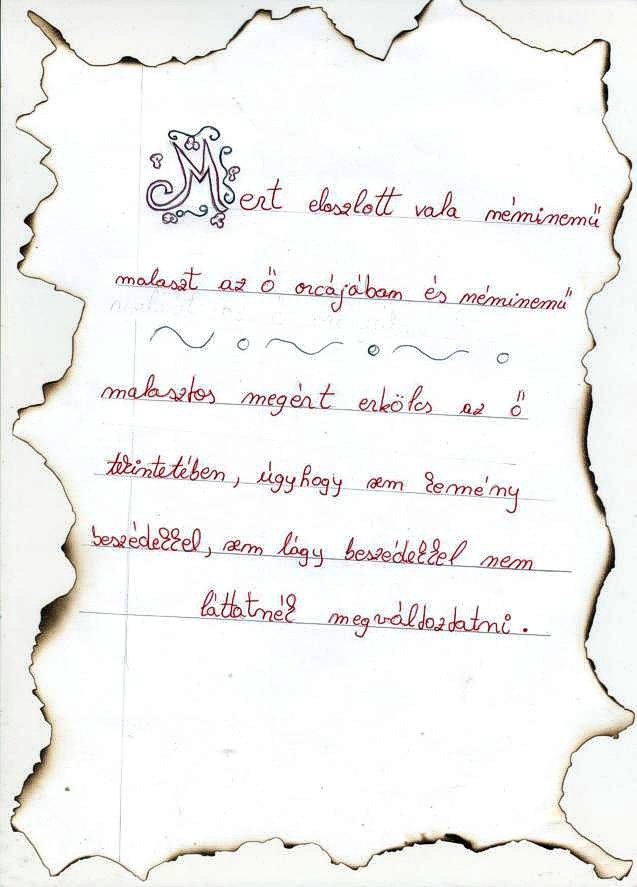 Mert eloszlott vala néminemű
malaszt az ő orcájában és néminemű
malasztos megért erkölcs az ő
tekintetében, úgyhogy sem kemény
beszédekkel, sem lágy beszédekkel nem
láttatnék megváltoztatni.